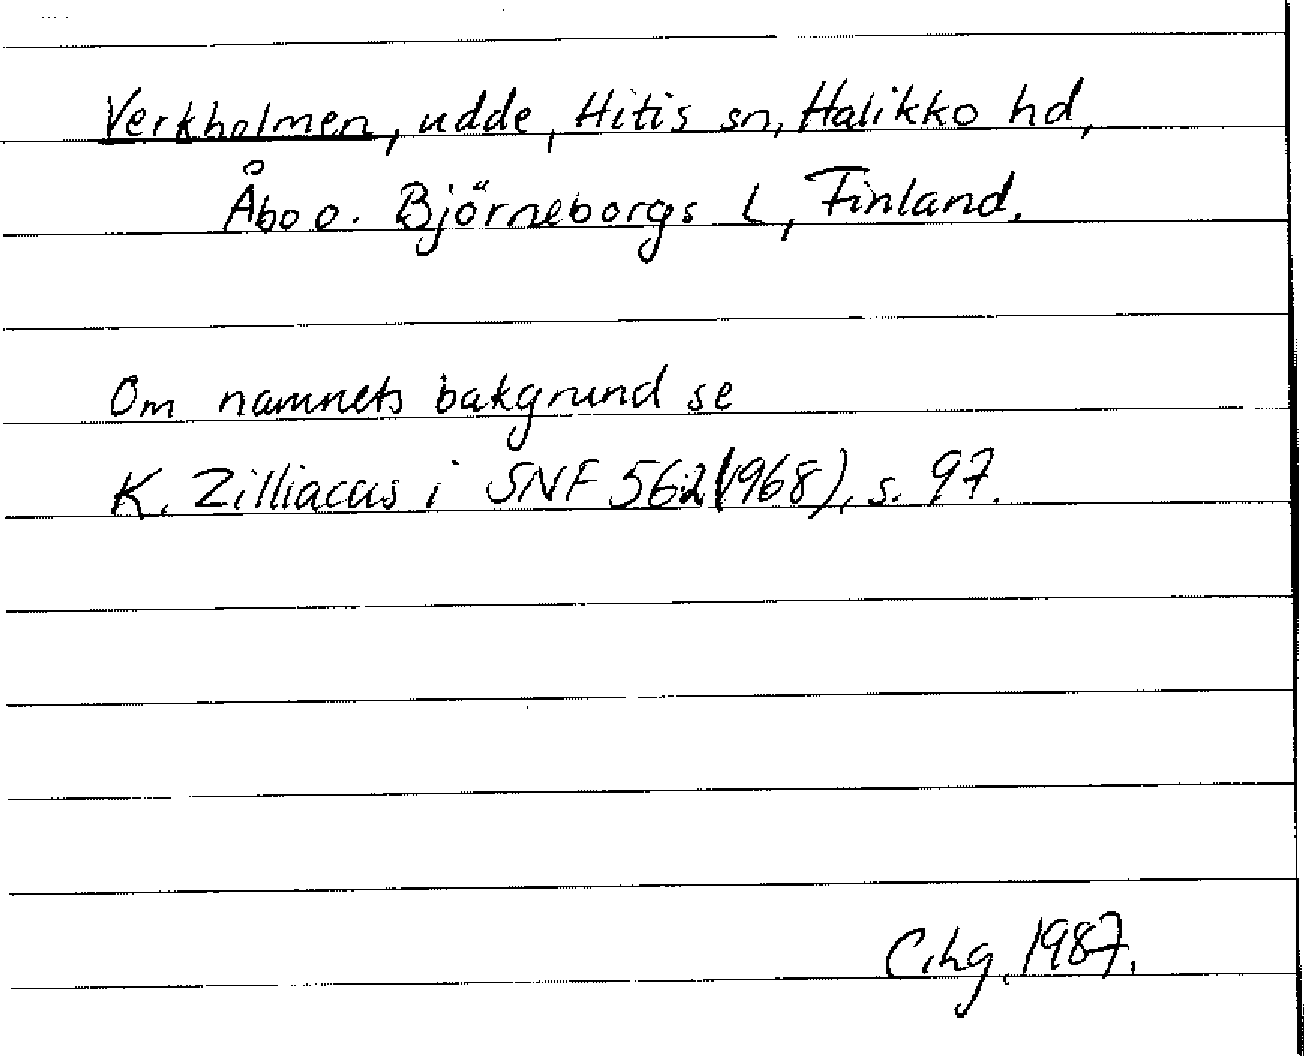 Verkholmen, udde, Hitis sn, Halikko hd,
Åbo o. Björneborgs L, Finland.
Om namnets bakgrund se
K. Zilliacus i SNF 562(1968), s. 97.
C.hg. 1987.